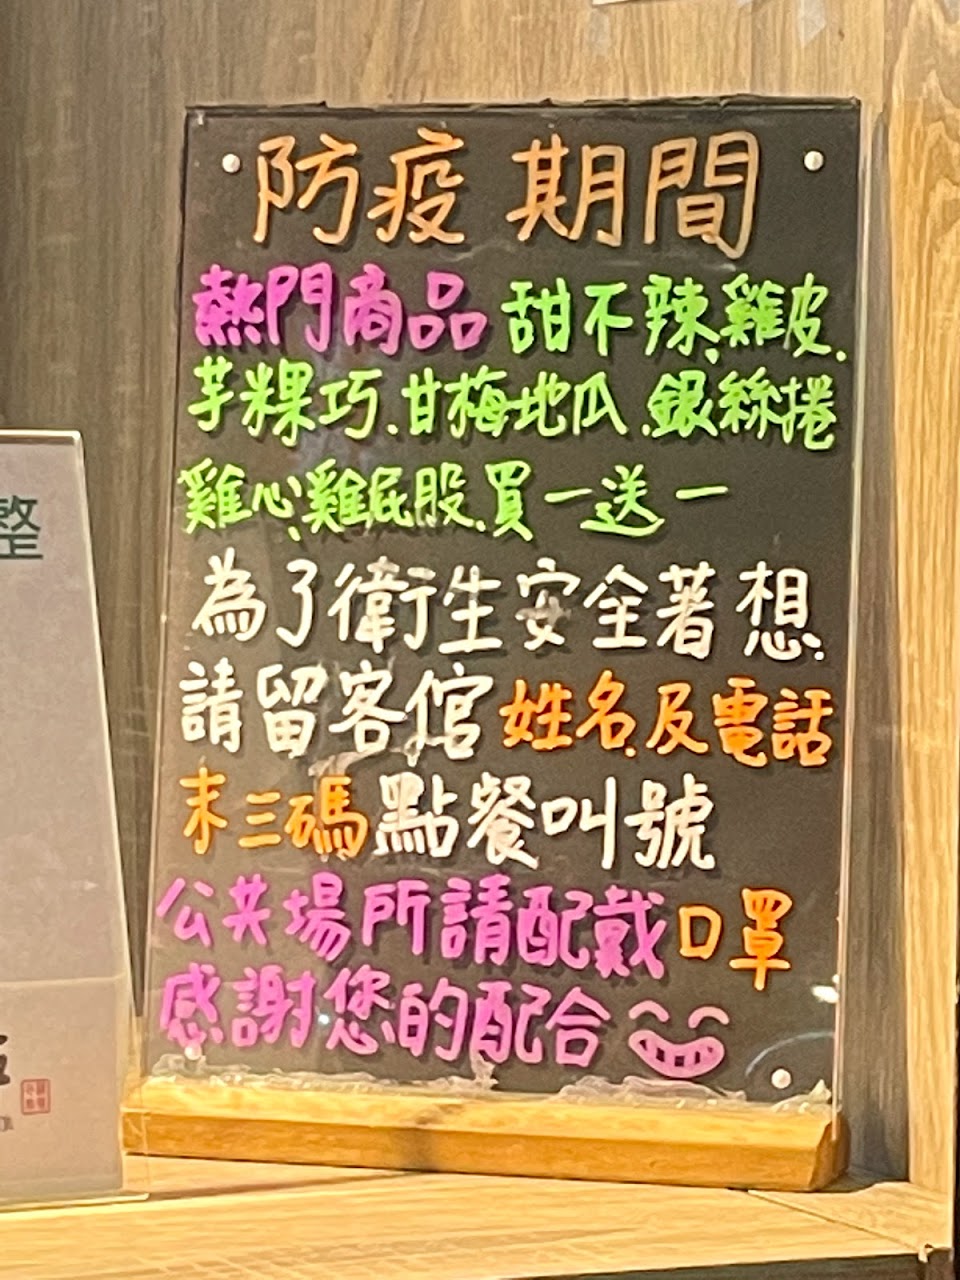 防疫期間
熱門商品 甜不辣、雞皮、
芋粿巧、甘梅地瓜、銀絲捲
雞心、雞屁股、買一送一
為了衛生安全著想、
請留客倌姓名及電話
末三碼點餐叫號
公共場所請配戴口罩
感謝您的配合
整